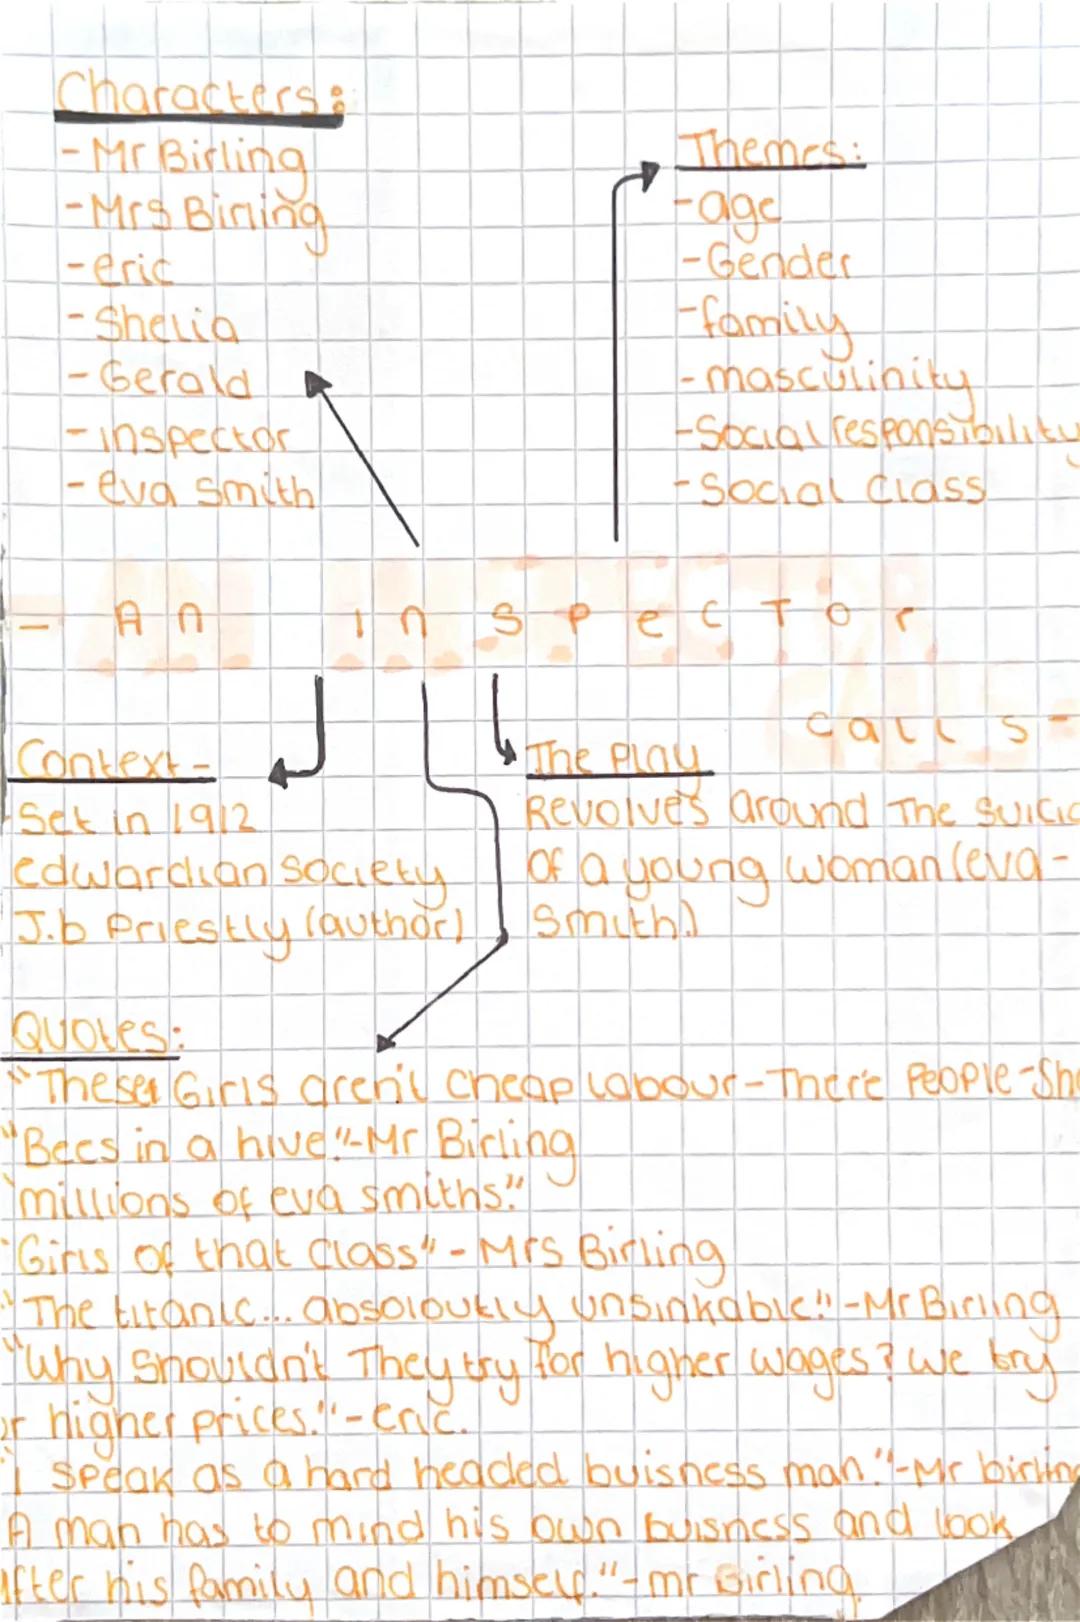 Characters:
- Mr Birling
- Mrs Birling
- eric
- Shelia
- Gerald
- inspector
- eva smith
Themes:
- age
- Gender
- family
- masculinity
- Social responsibility
- Social Class
- An inspecTor
calls -
Context -
Set in 1912
edwardian society
J.b Priestly (author)
The Play
Revolves around The suicid
of a young woman (eva -
Smith.)
Quotes:
"These Girls aren't cheap labour - There People - She
"Bees in a hive." - Mr Birling
"millions of eva smiths."
"Girls of that Class" - Mrs Birling
"The titanic... absoloutly unsinkable." - Mr Birling
"Why Shouldn't They try for higher wages? We try
or higher prices." - eric.
"I speak as a hard headed buisness man." - Mr birling
A man has to mind his own buisness and look
after his family and himself." - mr Birling.